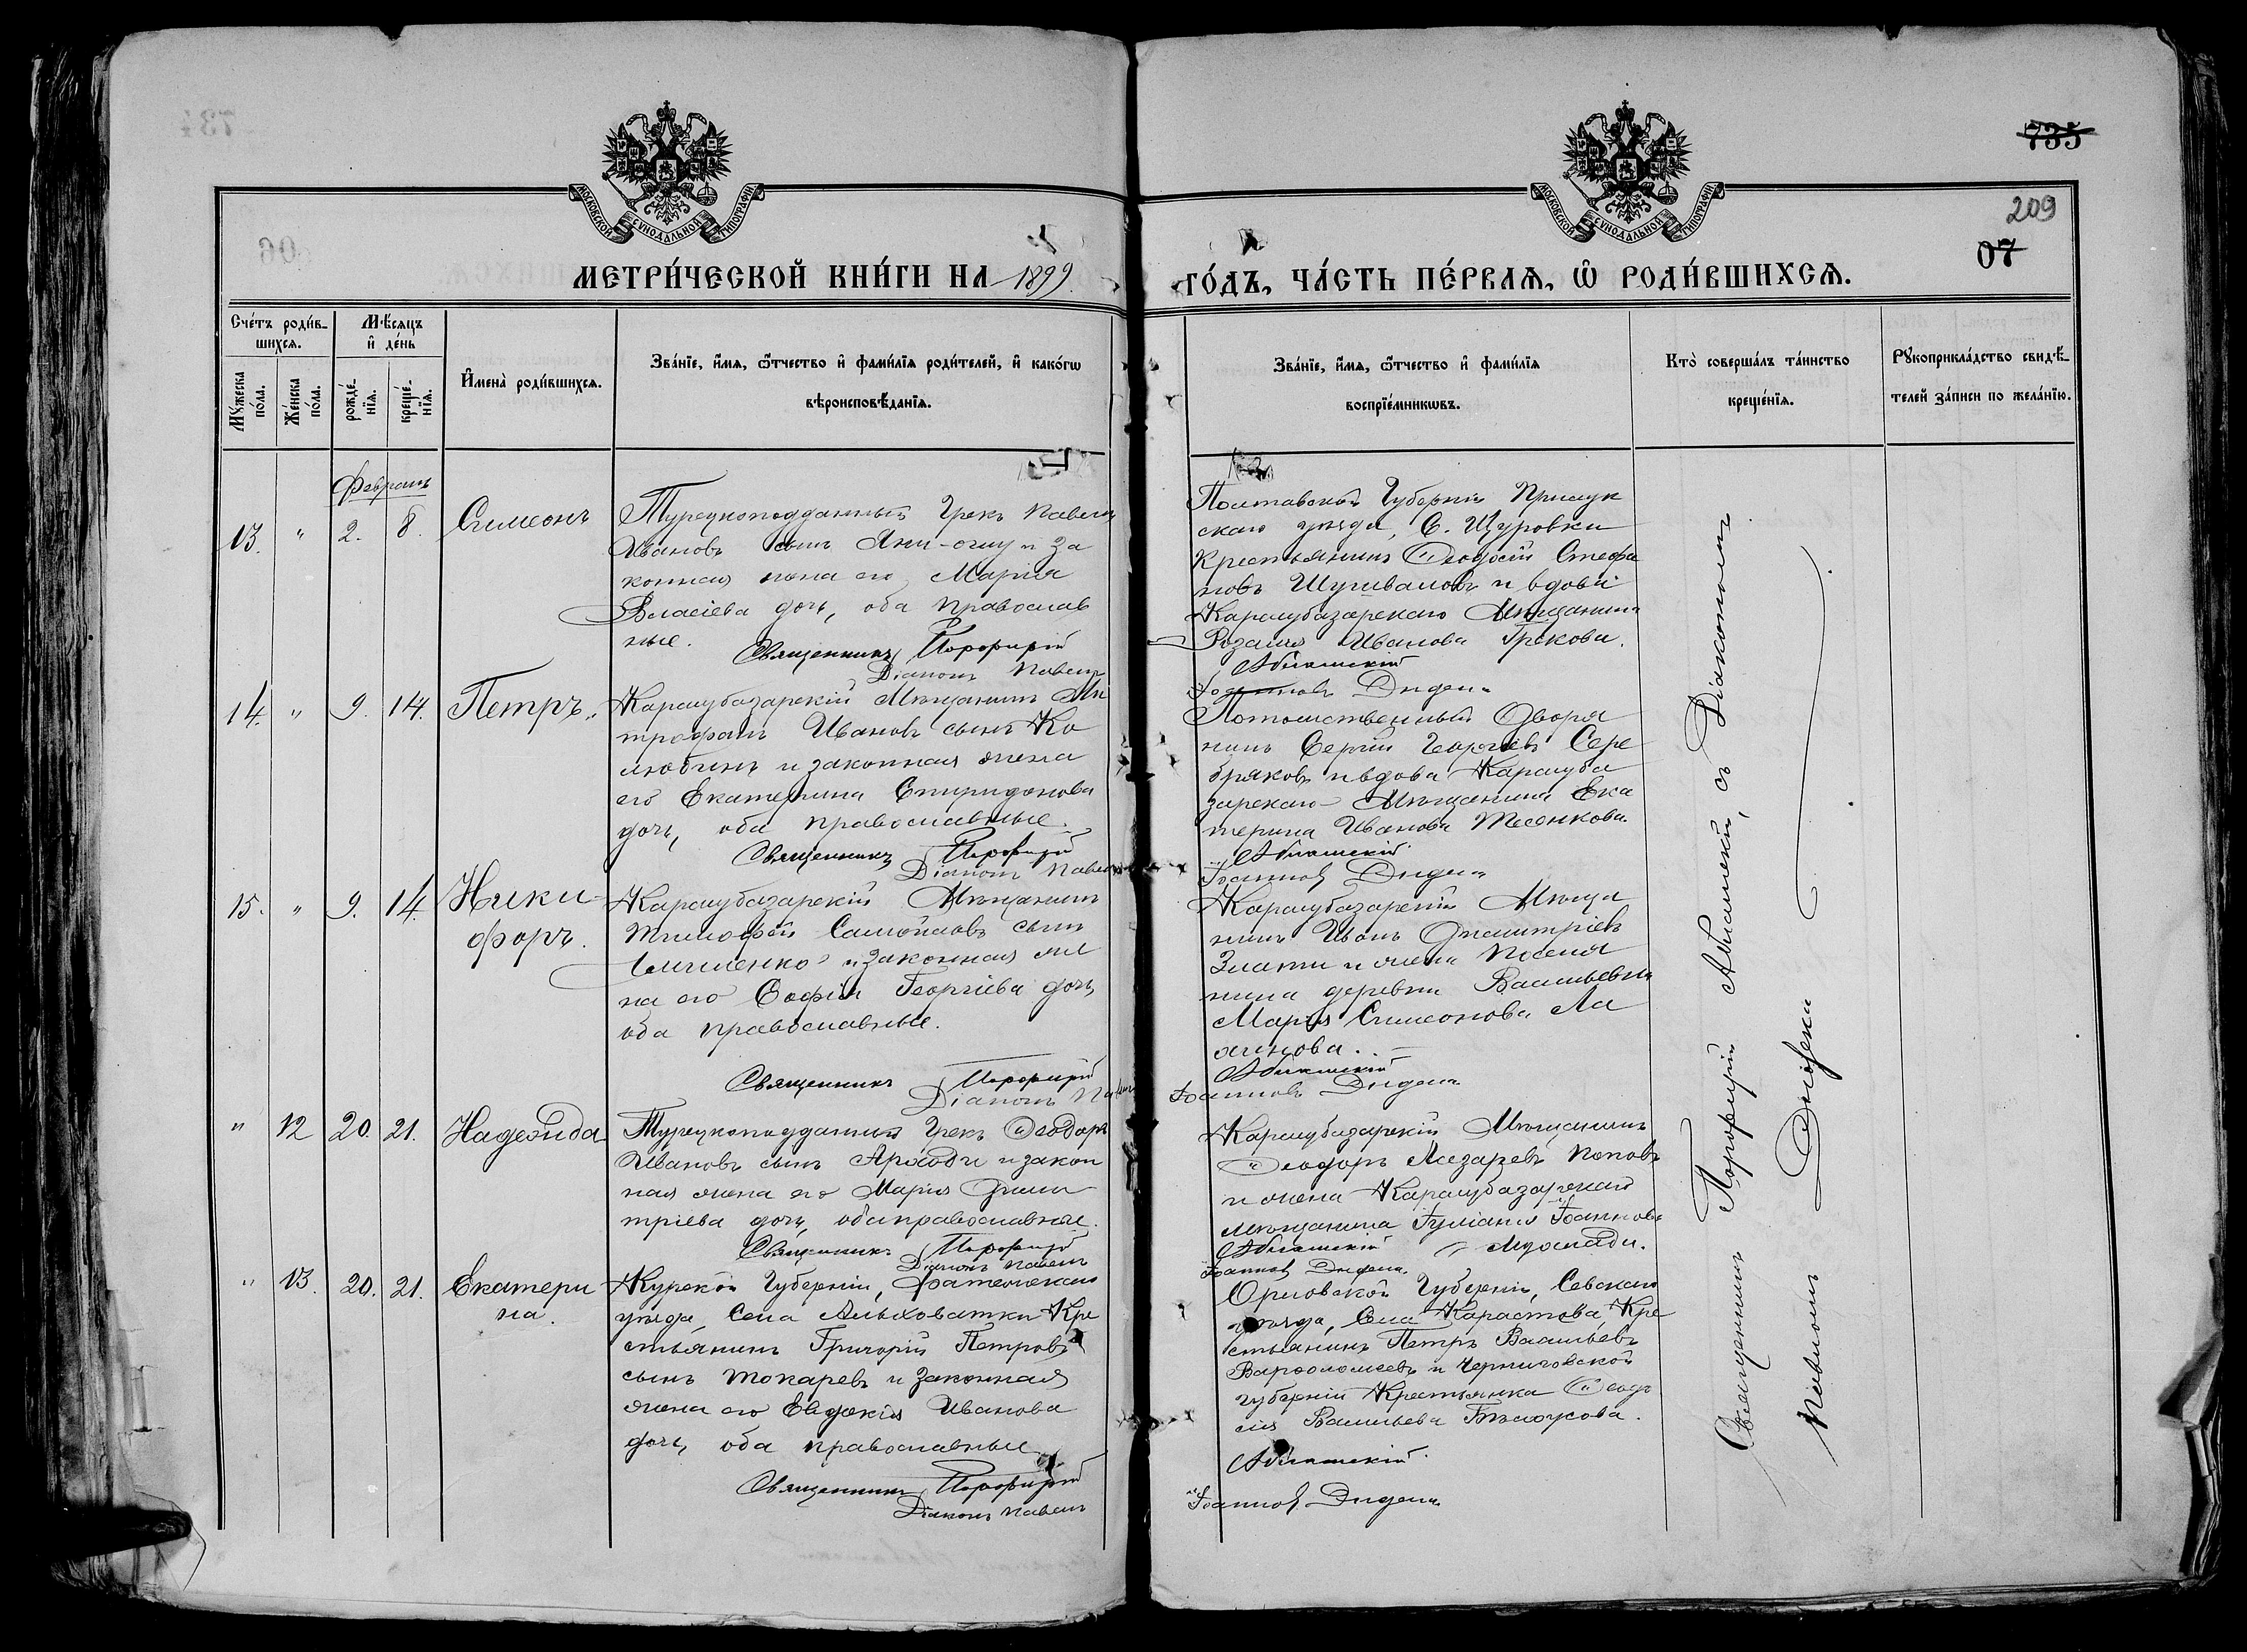 735
209
07
МОСКОВСКОЙ СѴНОДАЛЬНОЙ ТИПОГРАФІИ
МОСКОВСКОЙ СѴНОДАЛЬНОЙ ТИПОГРАФІИ
МЕТРИ́ЧЕСКОЙ КНИ́ГИ НА 1899
ГО́ДЪ, ЧА́СТЬ ПЕ́РВАѦ, Ѡ҆ РОДИ́ВШИХСѦ.
Сче́тъ роди́в-
шихсѧ.
Мѣ́сѧцъ
и҆ де́нь
Мꙋжеска
по́ла.
Же́нска
по́ла.
рожде́-
нїѧ.
креще́-
нїѧ.
И҆мена̀ роди́вшихсѧ.
Зва́нїе, и҆́мѧ, ѻ҆́тчество и҆ фами́лїѧ роди́телей, и҆ како́гѡ
вѣроисповѣ́данїѧ.
Зва́нїе, и҆́мѧ, ѻ҆́тчество и҆ фами́лїѧ
воспрїе́мникѡвъ.
Кто̀ соверша́лъ та́инство
креще́нїѧ.
Рꙋкоприкла́дство свидѣ́-
телей за́писи по жела́нїю.
Февраль
13. " 2. 8. Симеонъ
Турецкоподданный Грекъ Павелъ
Ивановъ сынъ Яни-оглу и за
конная жена его Марія
Власіева дочь, оба православ
ные.
Священникъ Порфирій
Діаконъ Павелъ
Полтавской Губерніи Прилук
скаго уѣзда, С. Щуровки
Крестьянинъ Ѳеодосій Стефа
новъ и вдова
Карасубазарскаго Мѣщанина
Розалія Иванова Грекова.
Абламскій
Іоанновъ Диден
14. " 9. 14. Петръ.
Карасубазарскій Мѣщанинъ Ми
трофанъ Ивановъ сынъ Ко
любинъ и законная жена
его Екатерина Спиридонова
дочь, оба православные.
Священникъ Порфирій
Діаконъ Павелъ
Потомственный Дворя
нинъ Сергій Георгіевъ Сере
бряковъ и вдова Карасуба
зарскаго Мѣщанина Ека
терина Иванова
Абламскій
Іоанновъ Диден
15. " 9. 14. Ники-
форъ.
Карасубазарскій Мѣщанинъ
Тимофей Самойловъ сынъ
и законная же
на его Софія Георгіева дочь,
оба православные.
Священникъ Порфирій
Діаконъ Павелъ
Карасубазарскій Мѣща
нинъ Иванъ Димитріевъ
Злати и жена Поселя
нина деревни Васильевки
Марія Симеонова Ла
жинова.
Абламскій
Іоанновъ Диден
" 12 20. 21. Надежда
Турецкоподданный Грекъ Ѳеодоръ
Ивановъ сынъ и закон
ная жена его Марія Дими
тріева дочь, оба православные.
Священникъ Порфирій
Діаконъ Павелъ
Карасубазарскій Мѣщанинъ
Ѳеодоръ Лазаревъ Поповъ
и жена Карасубазарскаго
мѣщанина Іуліанія Іоаннова
Абламскій
Іоанновъ Диден
" 13. 20. 21. Екатери
на.
Курской Губерніи, Фатежскаго
уѣзда, Села Альховатки Кре
стьянинъ Григорій Петровъ
сынъ Токаревъ и законная
жена его Евдокія Иванова
дочь, оба православные
Священникъ Порфирій
Діаконъ Павелъ
Орловской Губерніи, Севскаго
уѣзда, Села Карастова, Кре
стьянинъ Петръ Васильевъ
Варѳоломеевъ и Черниговской
губерніи Крестьянка Ѳеодо
сія Васильева Бѣлоусова.
Абламскій.
Іоанновъ Диден
Священникъ Порфирій Абламскій, съ Діакономъ
Павломъ